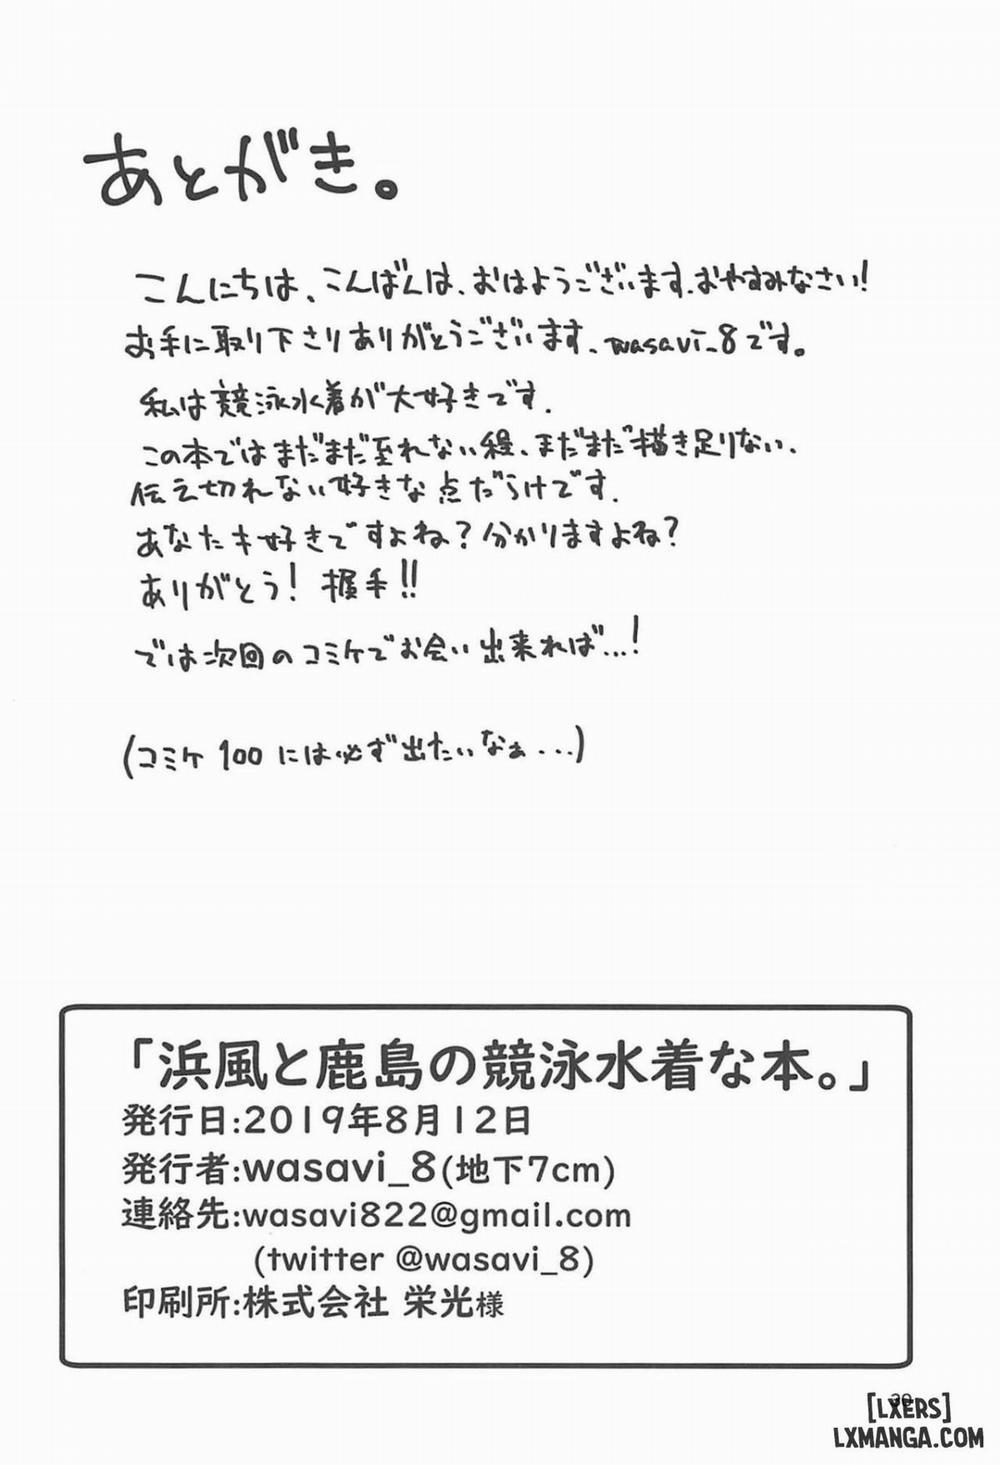 あとがき。
こんにちは、こんばんは、おはようございます、おやすみなさい!
お手に取り下さりありがとうございます、wasavi_8です。
私は競泳水着が大好きです。
この本ではまだまだ至れない程、まだまだ描き足りない、
伝え切れない好きな点だらけです。
あなたも好きですよね?分かりますよね?
ありがとう!握手!!
では次回のコミケでお会い出来れば…!
(コミケ100には必ず出たいなぁ...)
「浜風と鹿島の競泳水着な本。」
発行日:2019年8月12日
発行者:wasavi_8(地下7cm)
連絡先:wasavi822@gmail.com
(twitter @wasavi_8)
印刷所:株式会社 栄光様
[LXERS]
LXMANGA.COM